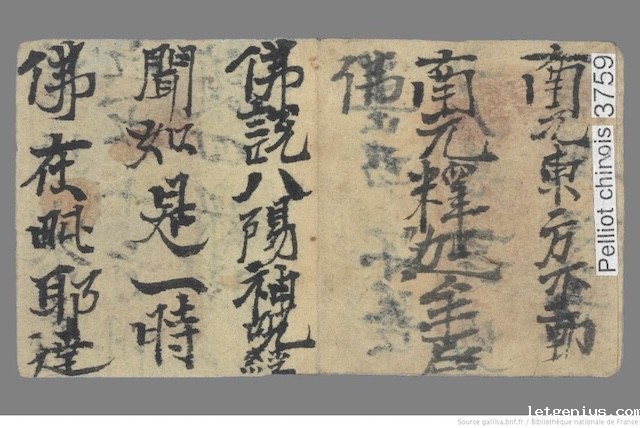 南无東方不動
南无釋迦牟尼
佛
佛說八陽神呪經
聞如是一時
佛在毗耶達
Pelliot chinois 3759
letgenius.com
Source gallica.bnf.fr / Bibliothèque nationale de France